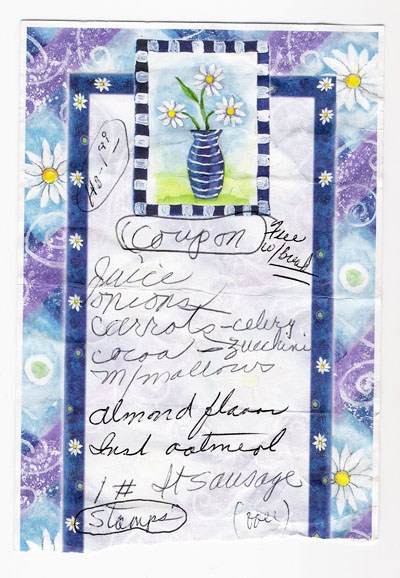 Coupon
Free
w/bread
Juice
onions
carrots - celery
cocoa - zucchini
m/mallows
almond flavor
Inst oatmeal
1 # It sausage
Stamps